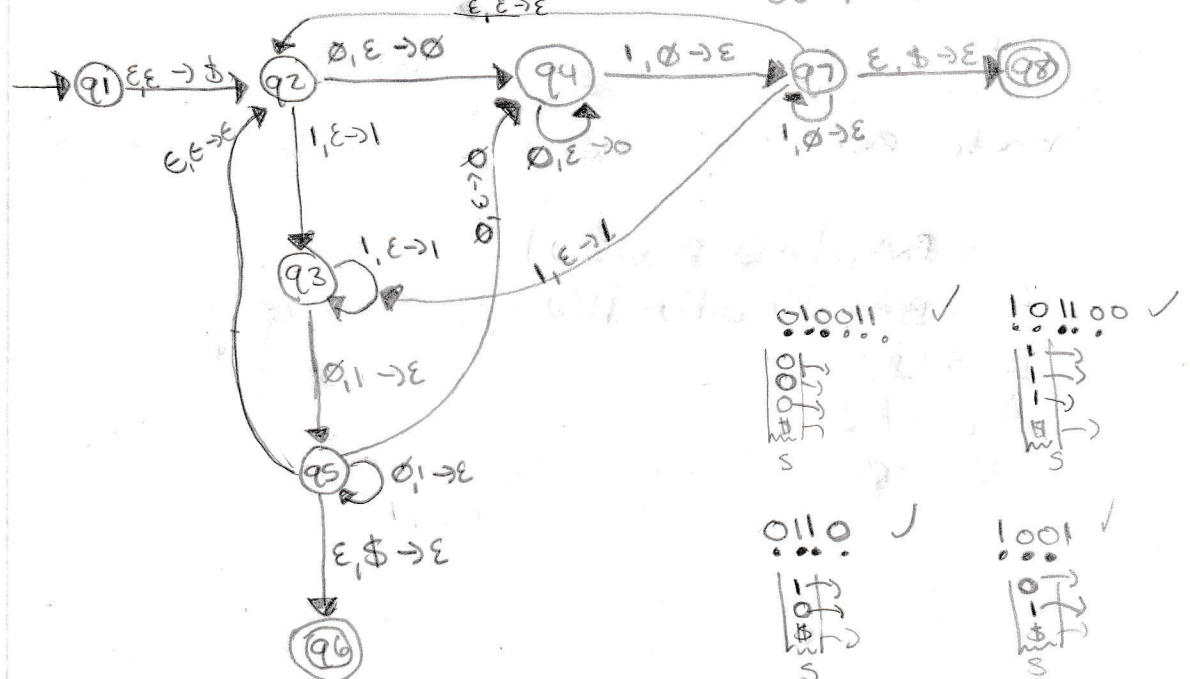 ε,ε→ε
q1
ε,ε→$
q2
0,ε→0
q4
1,0→ε
q7
ε,$→ε
q8
ε,ε→ε
1,ε→1
0,ε→0
0,ε→0
1,0→ε
q3
1,ε→1
1,ε→1
0,1→ε
q5
0,1→ε
ε,$→ε
q6
010011 ✓
0
0
0
$
S
101100 ✓
1
1
1
$
S
0110 ✓
1
0
$
S
1001 ✓
0
1
$
S